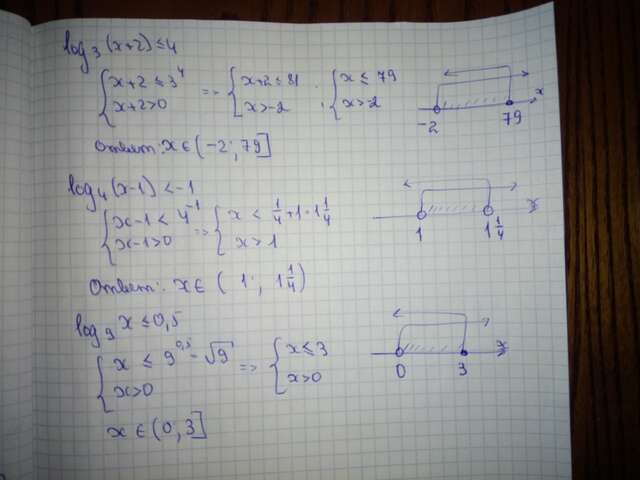 log₃(x+2)≤4
{x+2≤3⁴ => {x+2≤81 ; {x≤79
{x+2>0 {x>-2 {x>-2
-2 79 x
Ответ: x∈(-2; 79]
log₄(x-1)<-1
{x-1<4⁻¹ => {x<1/4+1=1 1/4
{x-1>0 {x>1
1 1 1/4 x
Ответ: x∈(1; 1 1/4)
log₉x≤0,5
{x≤9^0,5=√9 => {x≤3
{x>0 {x>0
0 3 x
x∈(0; 3]